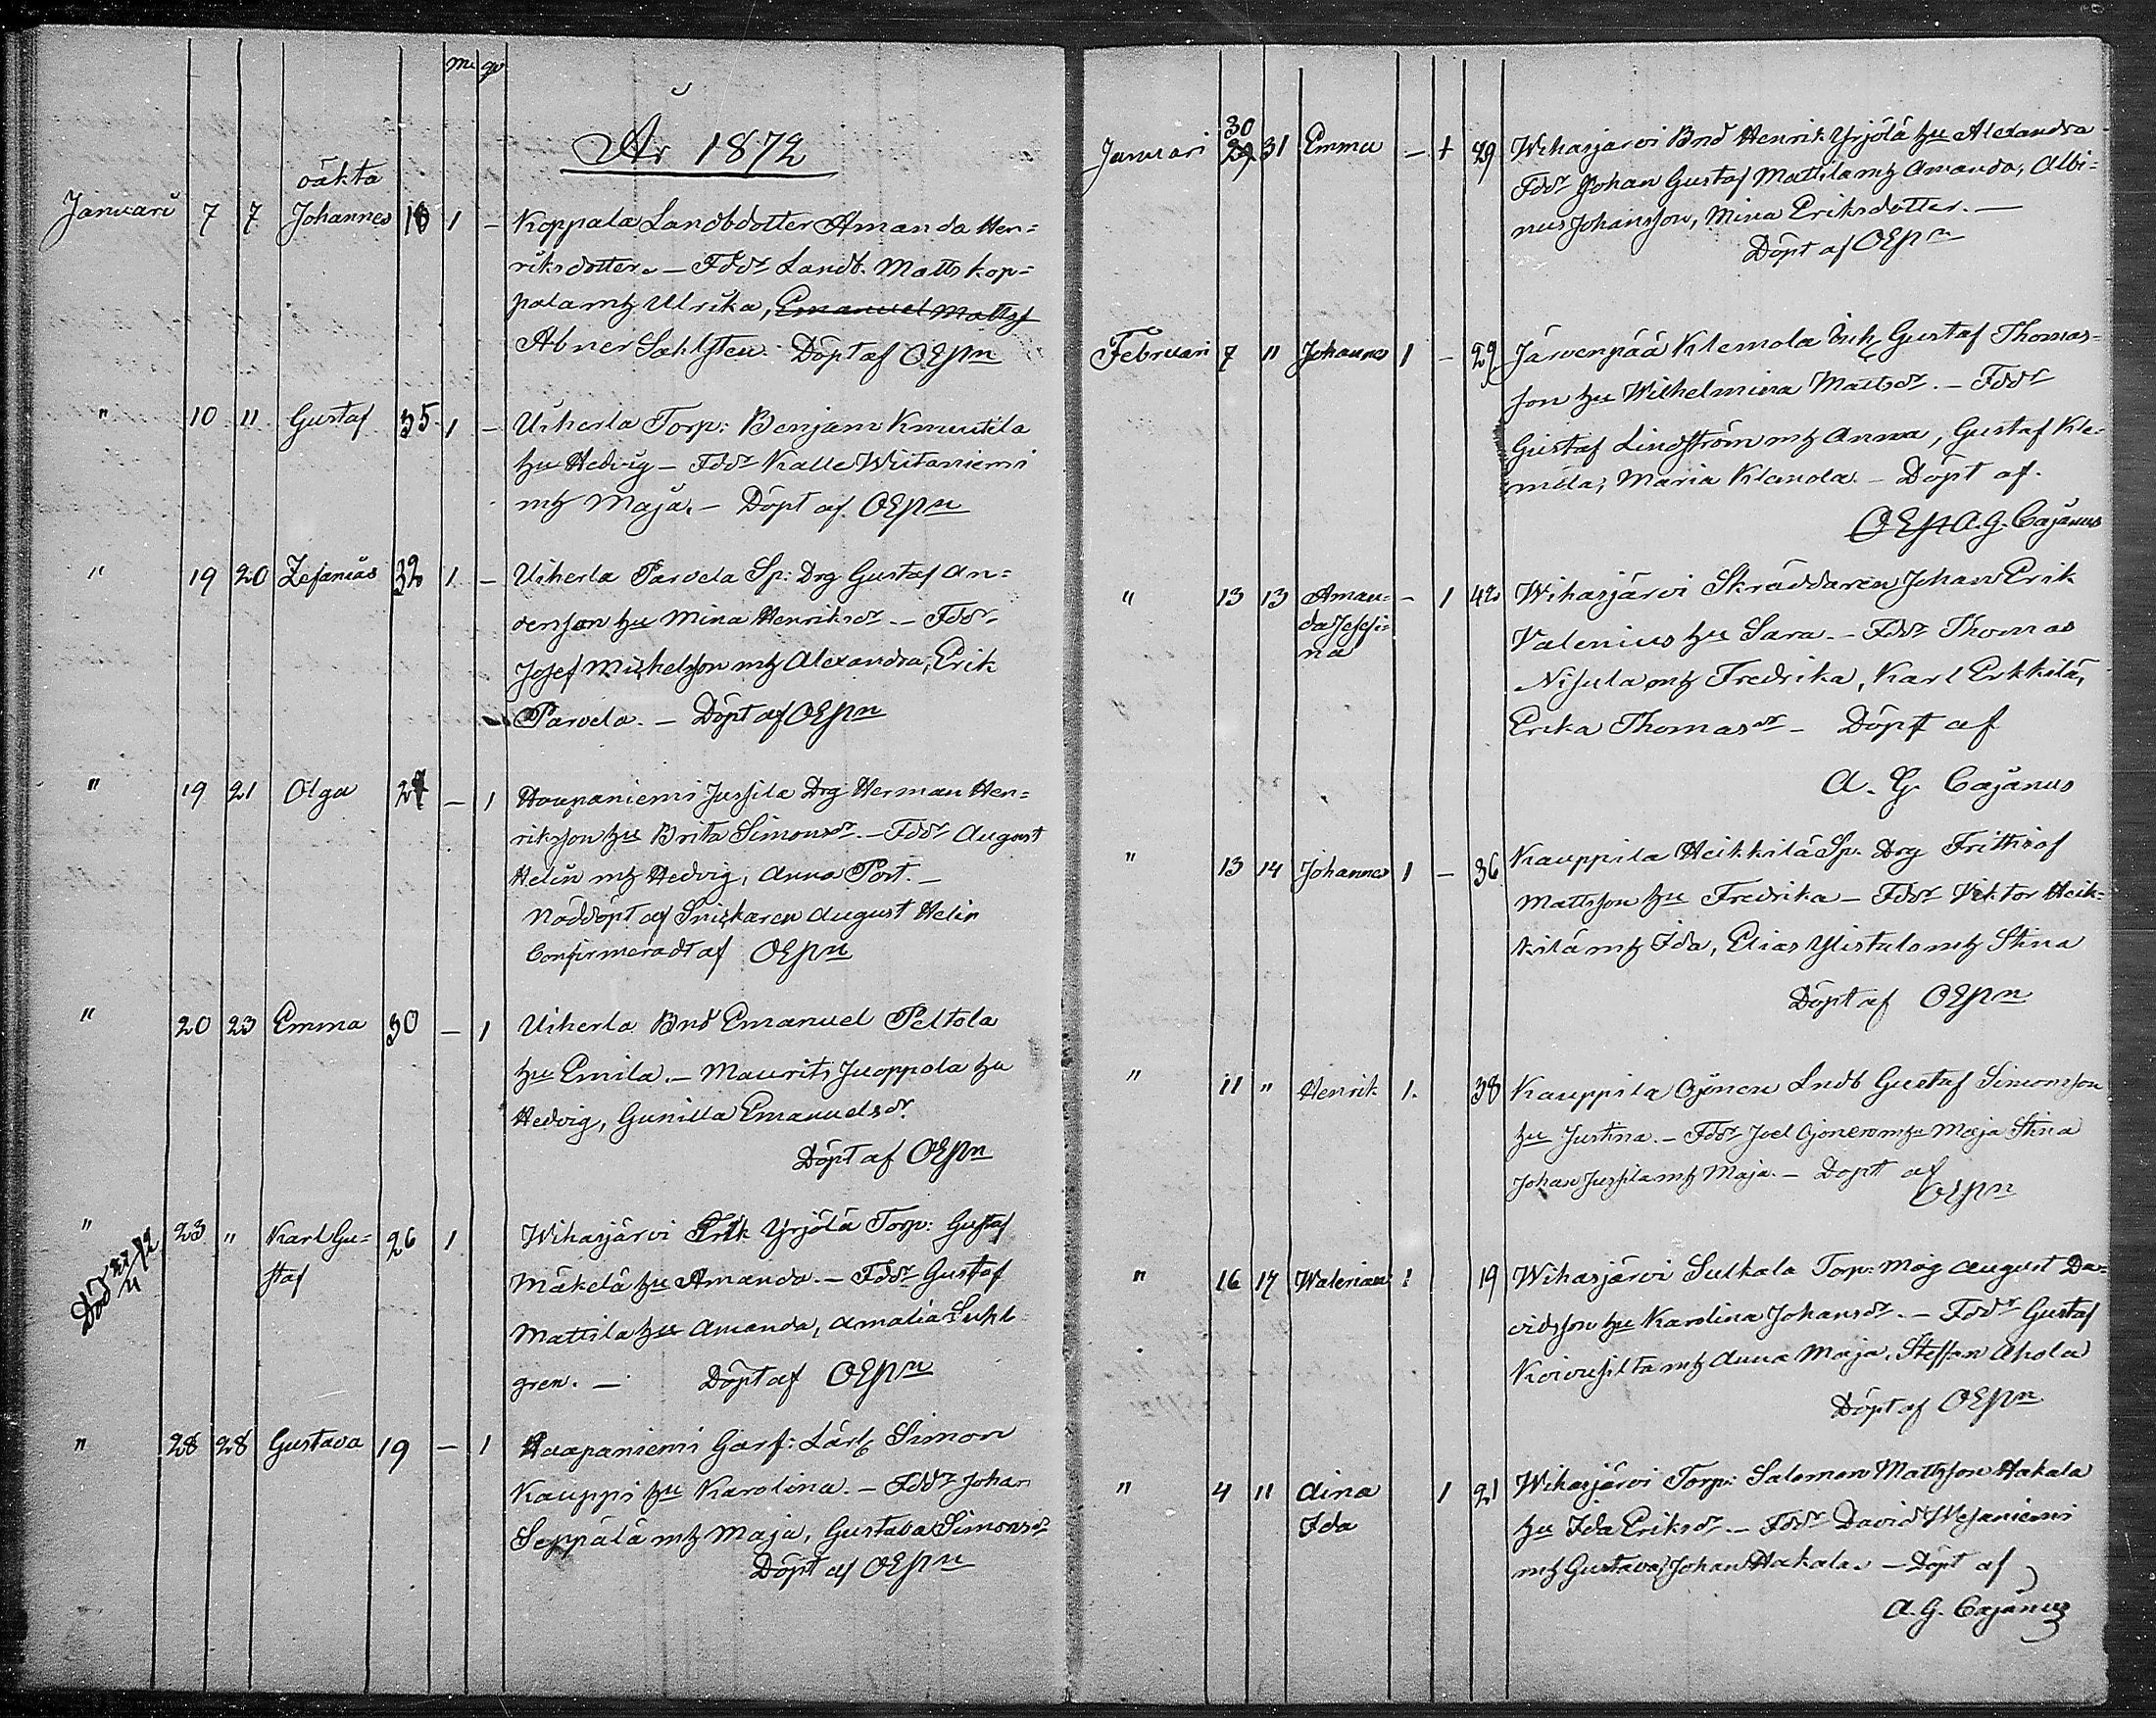 m. qv.
År 1872
oäkta
Januari 7 7 Johannes 18 1 – Koppala Landbdotter Amanda Hen=
riksdotter. – Fddr Landb. Matts Kop=
pala mh Ulrika, Emanuel Mattsf
Abner Sahlsten. Döpt af OEPn
" 10 11 Gustaf 35 1 – Uiherla Torp: Benjam Knuutila
hu Hedvig – Fddr Kalle Wiitaniemi
mh Maja. – Döpt af OEPn
" 19 20 Zefanias 32 1 – Uiherla Parvela Sp: Drg Gustaf An=
dersson hu Mina Henriksdr – Fddr
Josef Michelsson mh Alexandra, Erik
Parvela. – Döpt af OEPn
" 19 21 Olga 27 – 1 Haapaniemi Jussila Drg Herman Hen=
riksson hu Brita Simonsdr. – Fddr August
Helin mh Hedvig, Anna Port. –
Nöddöpt af Snickaren August Helin
Confirmeradt af OEPn
" 20 23 Emma 30 – 1 Uiherla Bnd Emanuel Peltola
hu Emila. – Maurits Juoppola hu
Hedvig, Gunilla Emanuelsdr.
Döpt af OEPn
" 23 " Karl Gu= 26 1 Wihasjärvi Erik Yrjölä Torp: Gustaf
Död staf Mäkelä hu Amanda. – Fddr Gustaf
Mattila hu Amanda, Amalia Suhl
gren. – Döpt af OEPn
" 28 28 Gustava 19 – 1 Haapaniemi Garf: Lärl Simon
Kauppi hu Karolina. – Fddr Johan
Seppälä mh Maja, Gustava Simonsdr
Döpt af OEPn
Januari 30 29 31 Emma – 1 29 Wihasjärvi Bnd Henrik Yrjölä hu Alexandra
Fddr Johan Gustaf Mattila mh Amanda, Albi=
nus Johansson, Mina Eriksdotter. –
Döpt af OEPn
Februari 7 11 Johannes 1 – 29 Järvenpää Klemola Inh Gustaf Thomas=
son hu Wilhelmina Mattsdr. – Fddr
Gustaf Lindström mh Anna, Gustaf Kle=
mola, Maria Klemola. – Döpt af
OEP A. G. Cajanus
" 13 13 Aman= – 1 42 Wihasjärvi Skräddaren Johan Erik
da Josefi= Valenius hu Sara. – Fddr Thomas
na Nisula mh Fredrika, Karl Erkkilä,
Erika Thomasdr – Döpt af
A. G. Cajanus
" 13 14 Johannes 1 – 36 Kauppila Heikkilä Sp. Drg Frithiof
Mattsson hu Fredrika – Fddr Viktor Heik=
kilä mh Ida, Elias Ylistalo mh Stina
Döpt af OEPn
" 11 " Henrik 1. 38 Kauppila Ojonen Lndb Gustaf Simonsson
hu Justina. – Fddr Joel Ojonen mh Maja Stina
Johan Jussila mh Maja. – Döpt af
OEPn
" 16 17 Walerian 1 19 Wihasjärvi Sulkala Torp: Måg August Da=
vidsson hu Karolina Johansdr. – Fddr Gustaf
Koivusilta mh Anna Maja, Steffan Ahola
Döpt af OEPn
" 4 11 Aina 1 21 Wihasjärvi Torp: Salomon Mattsson Hakala
Ida hu Ida Eriksdr. – Fddr David Mesaniemi
mh Gustava, Johan Hakala. – Döpt af
A. G. Cajanus